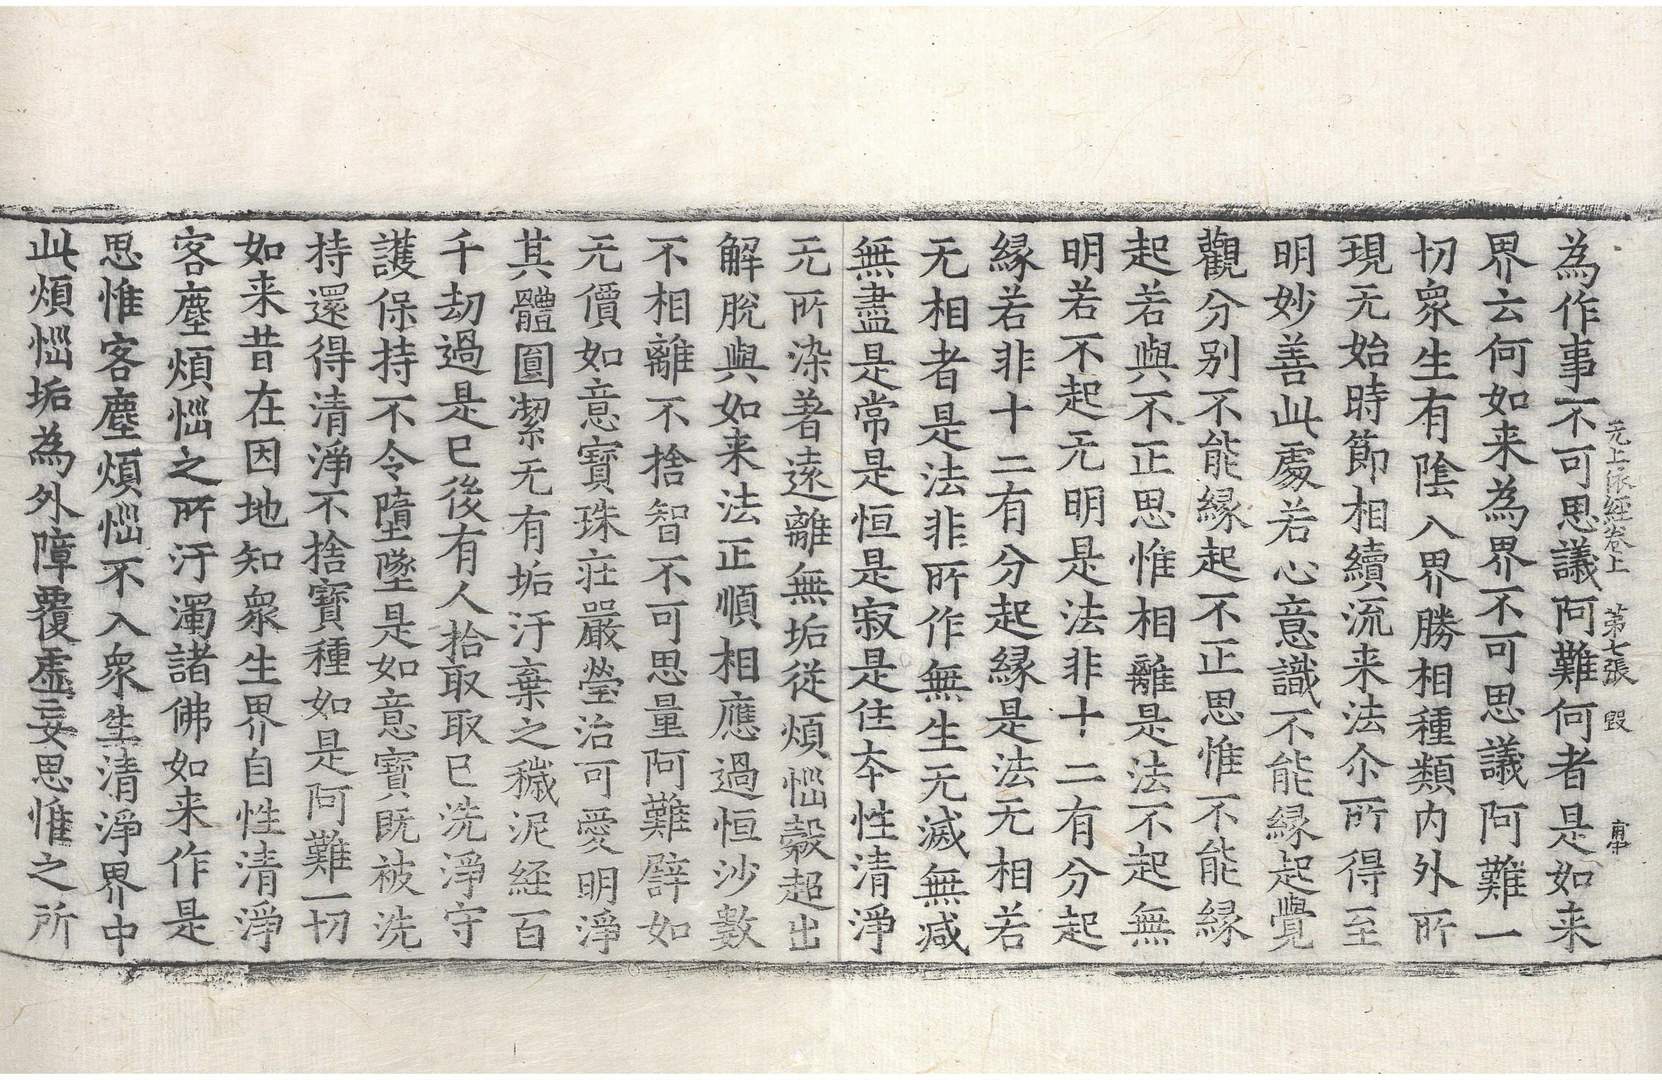 為作事不可思議阿難何者是如来
无上依經卷上 第七張 毀
界云何如来為界不可思議阿難一
切衆生有陰入界勝相種類内外所
現无始時節相續流来法尒所得至
明妙善此處若心意識不能縁起覺
觀分别不能縁起不正思惟不能縁
起若與不正思惟相離是法不起無
明若不起无明是法非十二有分起
縁若非十二有分起縁是法无相若
无相者是法非所作無生无滅無减
無盡是常是恒是寂是住本性清淨
无所染著遠離無垢從煩惱㲉超出
解脫與如来法正順相應過恒沙數
不相離不捨智不可思量阿難譬如
无價如意寶珠莊嚴瑩治可愛明淨
其體圓潔无有垢汙棄之穢泥経百
千劫過是已後有人拾取取已洗淨守
護保持不令墮墜是如意寶既被洗
持還得清淨不捨寶種如是阿難一切
如来昔在因地知衆生界自性清淨
客塵煩惱之所汙濁諸佛如来作是
思惟客塵煩惱不入衆生清淨界中
此煩惱垢為外障覆虚妄思惟之所